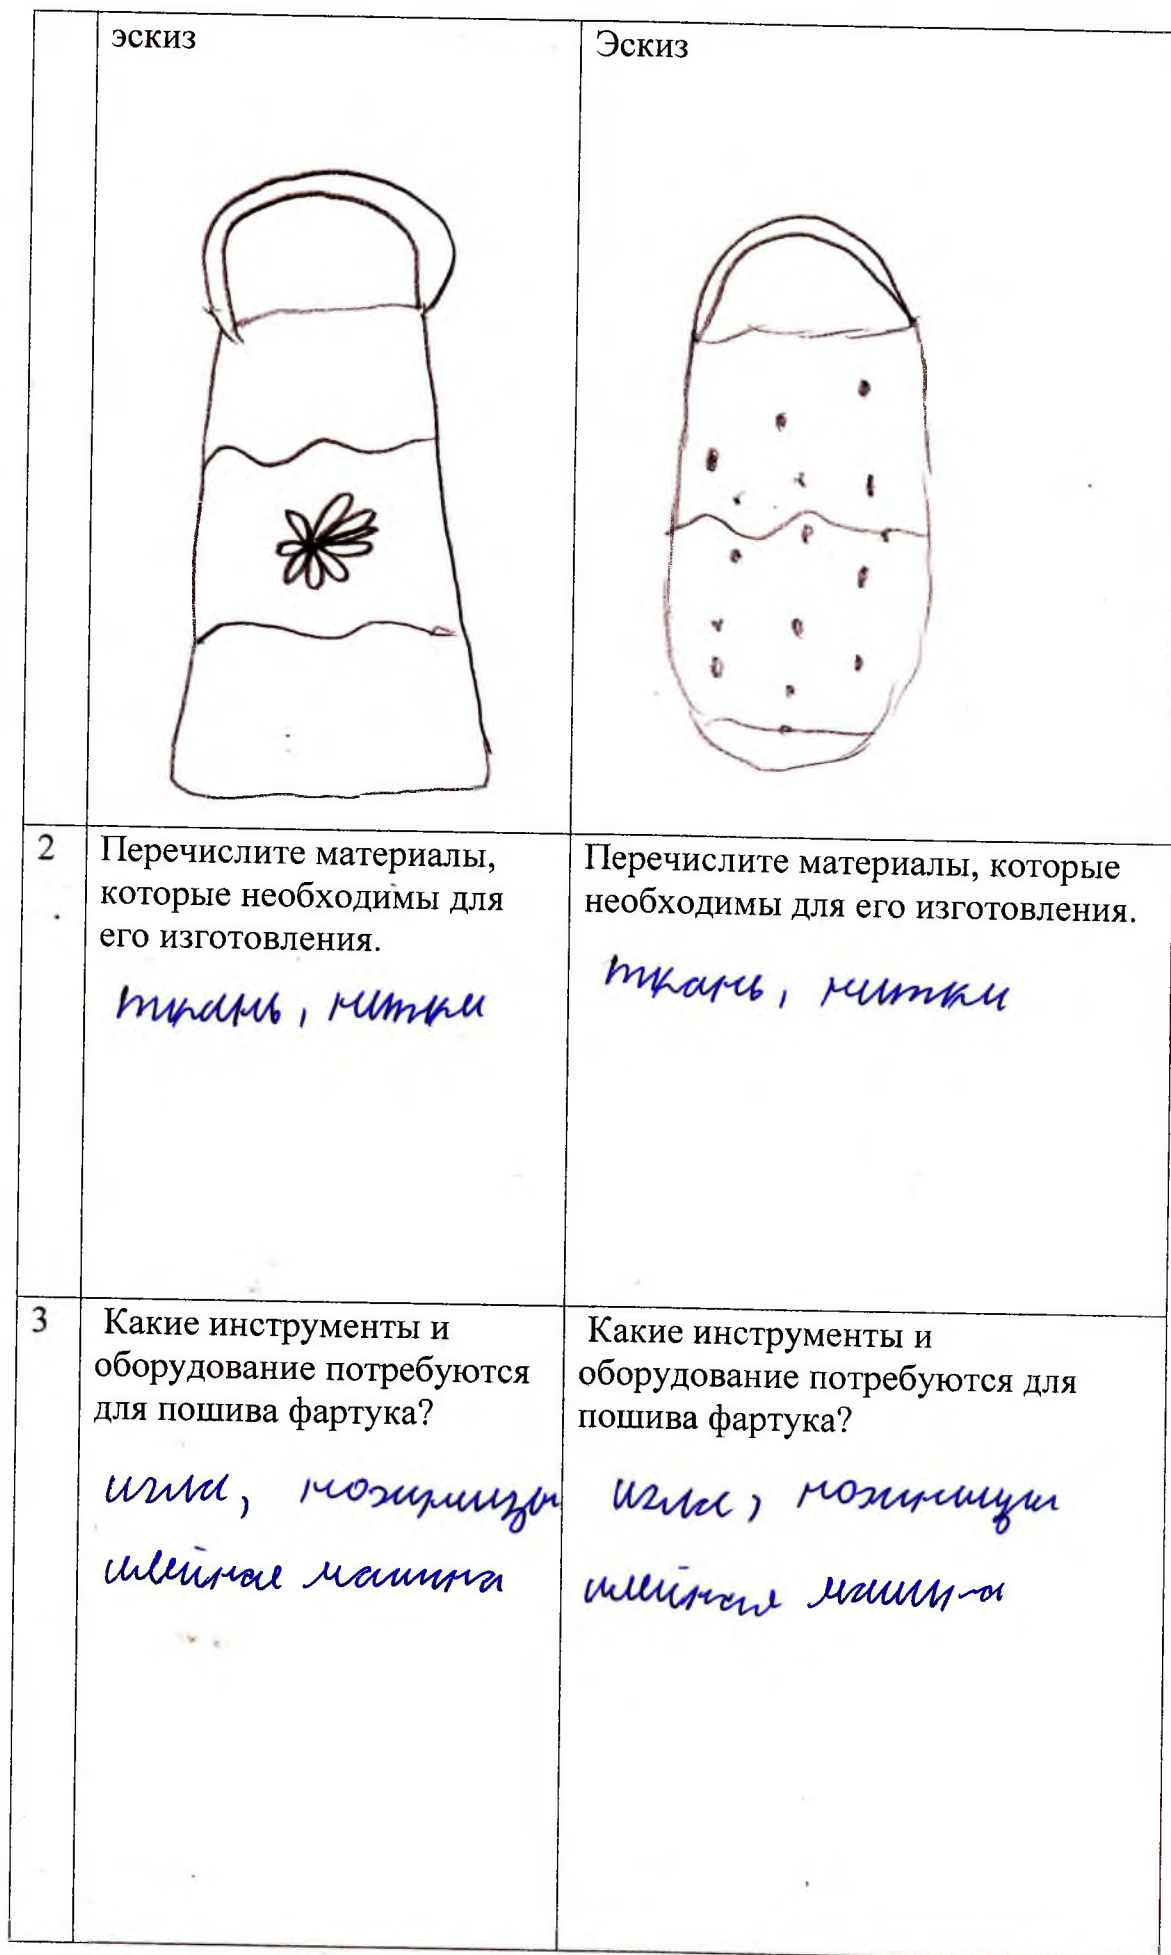 эскиз
Эскиз
2
Перечислите материалы,
которые необходимы для
его изготовления.
ткань, нитки
Перечислите материалы, которые
необходимы для его изготовления.
ткань, нитки
3
Какие инструменты и
оборудование потребуются
для пошива фартука?
игла, ножницы
швейная машина
Какие инструменты и
оборудование потребуются для
пошива фартука?
игла, ножницы
швейная машина